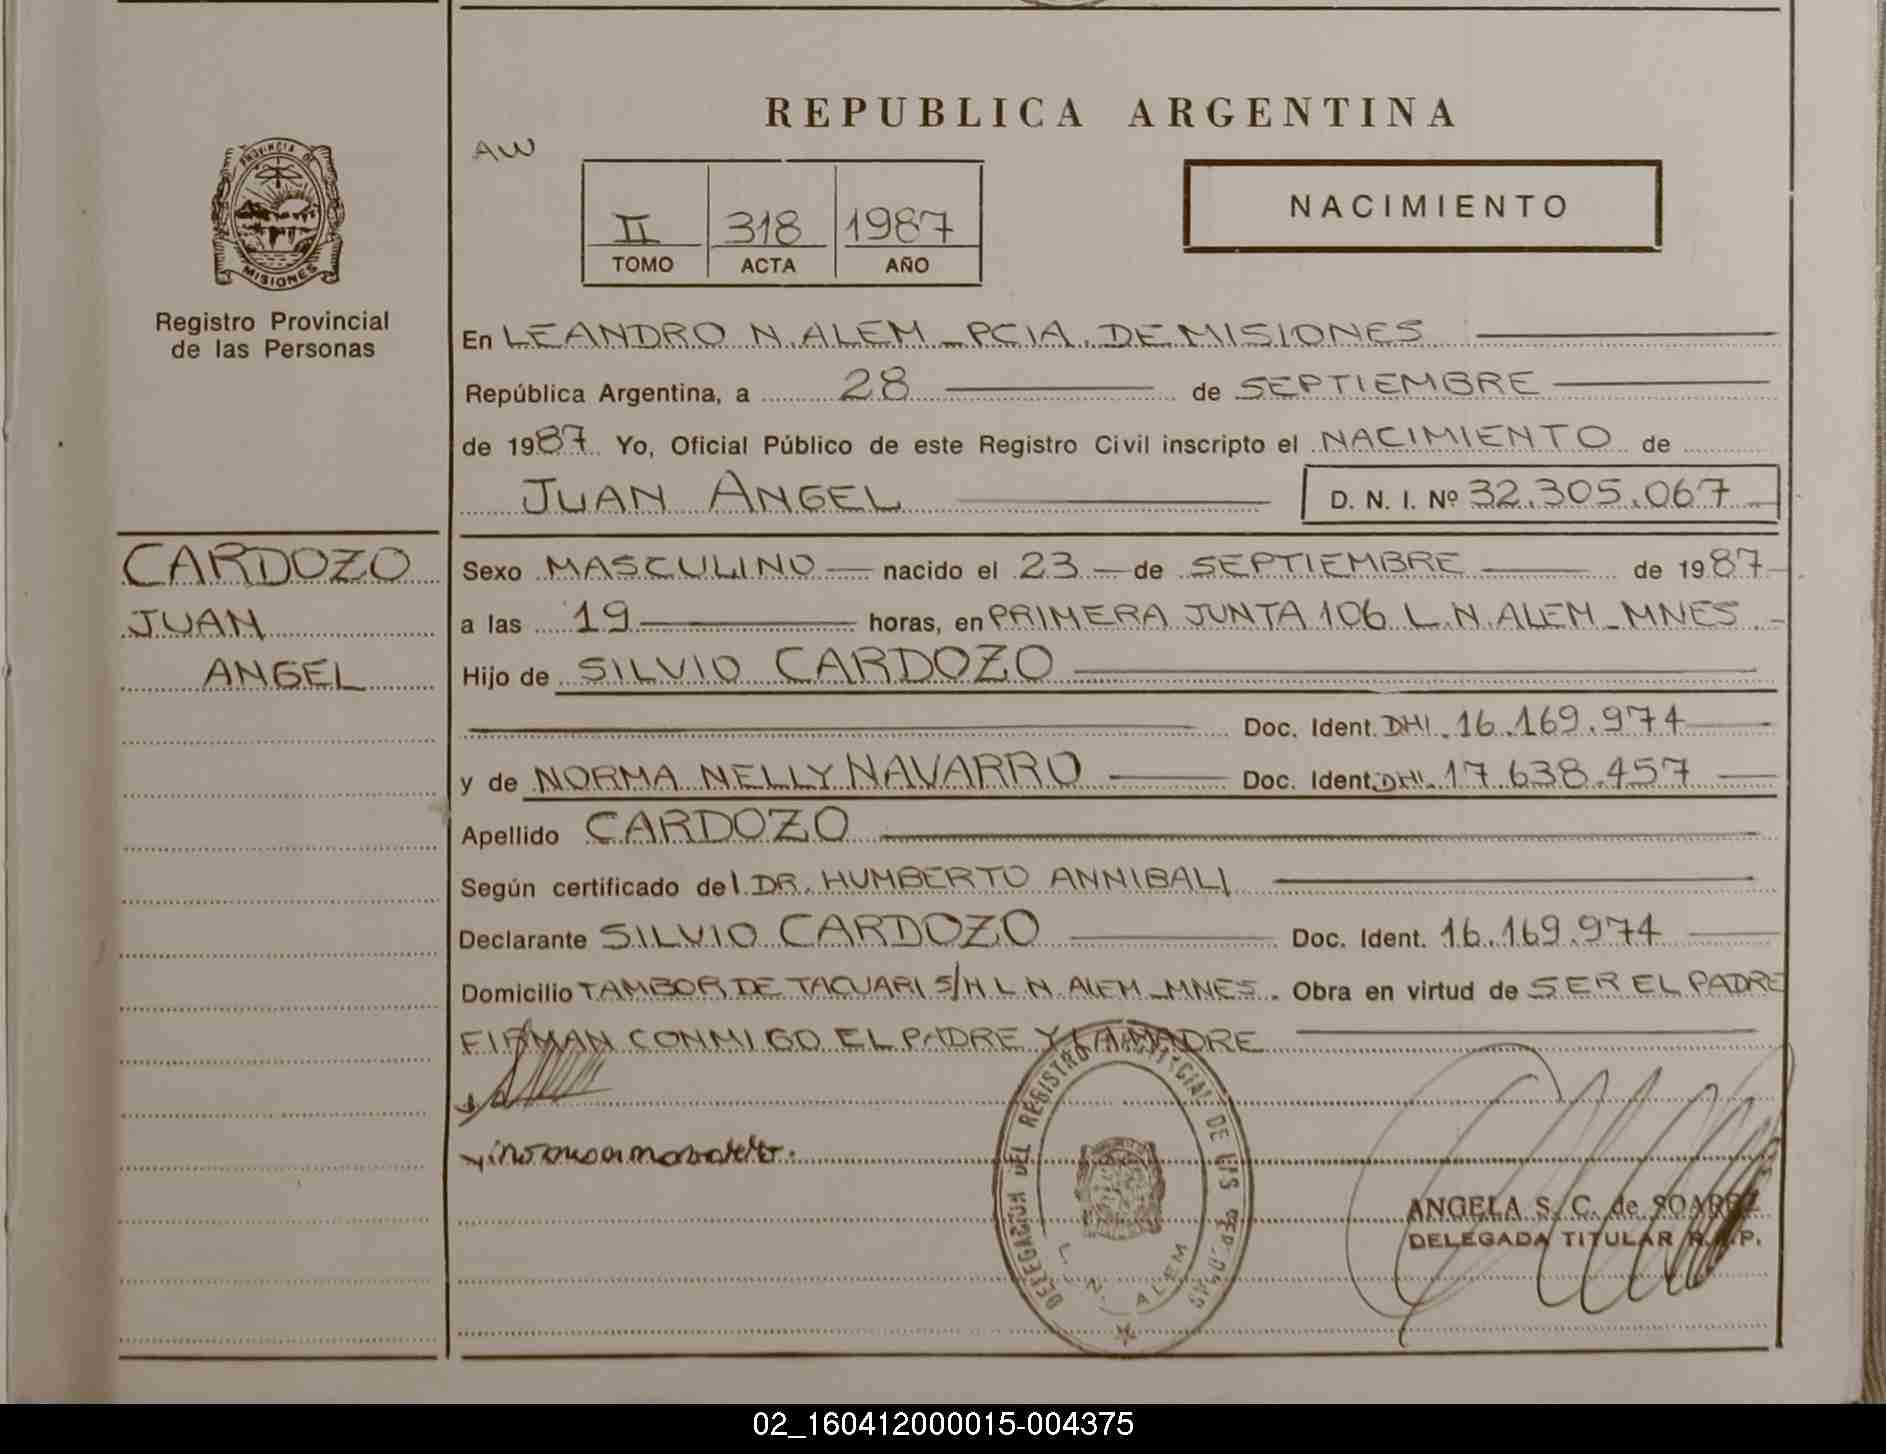 REPUBLICA ARGENTINA
AW
PROVINCIA DE
MISIONES
Registro Provincial
de las Personas
II 318 1987
TOMO ACTA AÑO
NACIMIENTO
En LEANDRO N. ALEM - PCIA. DE MISIONES
República Argentina, a 28 de SEPTIEMBRE
de 1987. Yo, Oficial Público de este Registro Civil inscripto el NACIMIENTO de
JUAN ANGEL D. N. I. Nº 32.305.067
CARDOZO
JUAN
ANGEL
Sexo MASCULINO nacido el 23 de SEPTIEMBRE de 1987
a las 19 horas, en PRIMERA JUNTA 106 L.N. ALEM - MNES.
Hijo de SILVIO CARDOZO
Doc. Ident. DNI. 16.169.974
y de NORMA NELLY NAVARRO Doc. Ident. DNI. 17.638.457
Apellido CARDOZO
Según certificado del DR. HUMBERTO ANNIBALI
Declarante SILVIO CARDOZO Doc. Ident. 16.169.974
Domicilio TAMBOR DE TACUARI S/N L N ALEM - MNES. Obra en virtud de SER EL PADRE
FIRMAN CONMIGO EL PADRE Y LA MADRE
DELEGACION DEL REGISTRO PROVINCIAL DE LAS PERSONAS
L. N. ALEM
ANGELA S. C. de SOAREZ
DELEGADA TITULAR R.P.P.
02_160412000015-004375